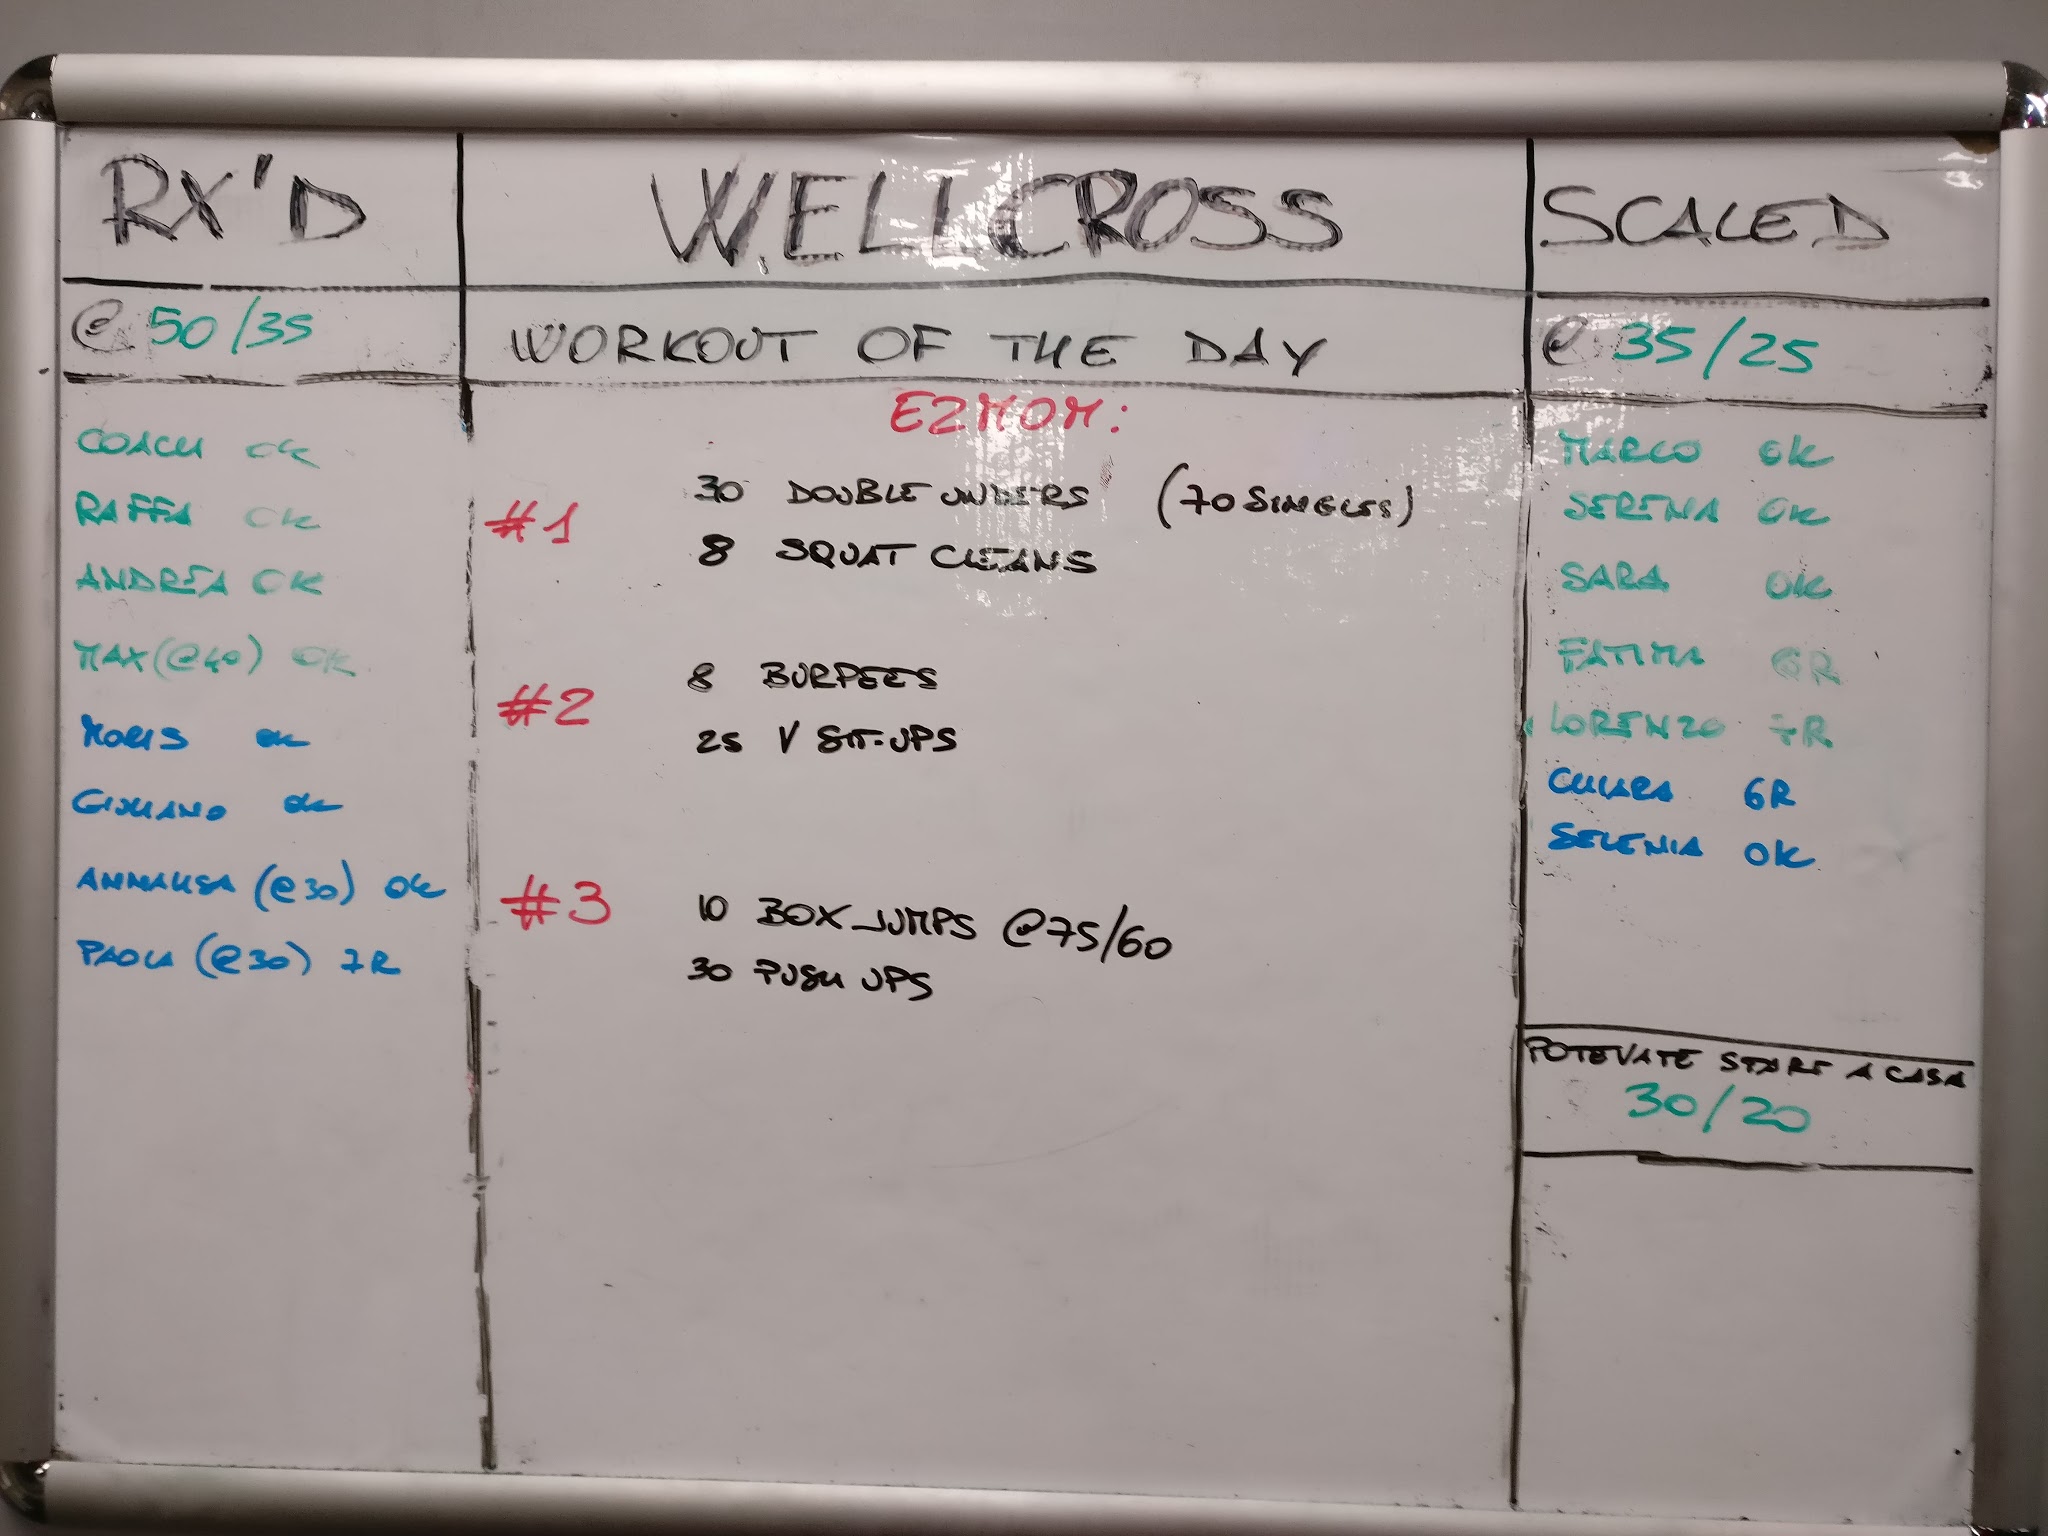 RX'D
@ 50/35
COACH OK
RAFFA OK
ANDREA OK
MAX (@40) OK
MORIS OK
GIULIANO OK
ANNALISA (@30) OK
PAOLA (@30) 7R
WELLCROSS
WORKOUT OF THE DAY
E2MOM:
#1
30 DOUBLE UNDERS (70 SINGLES)
8 SQUAT CLEANS
#2
8 BURPEES
25 V SIT-UPS
#3
10 BOX JUMPS @75/60
30 PUSH UPS
SCALED
@ 35/25
MARCO OK
SERENA OK
SARA OK
FATIMA 6R
LORENZO 7R
CHIARA 6R
SELENIA OK
POTEVATE STARE A CASA
30/20